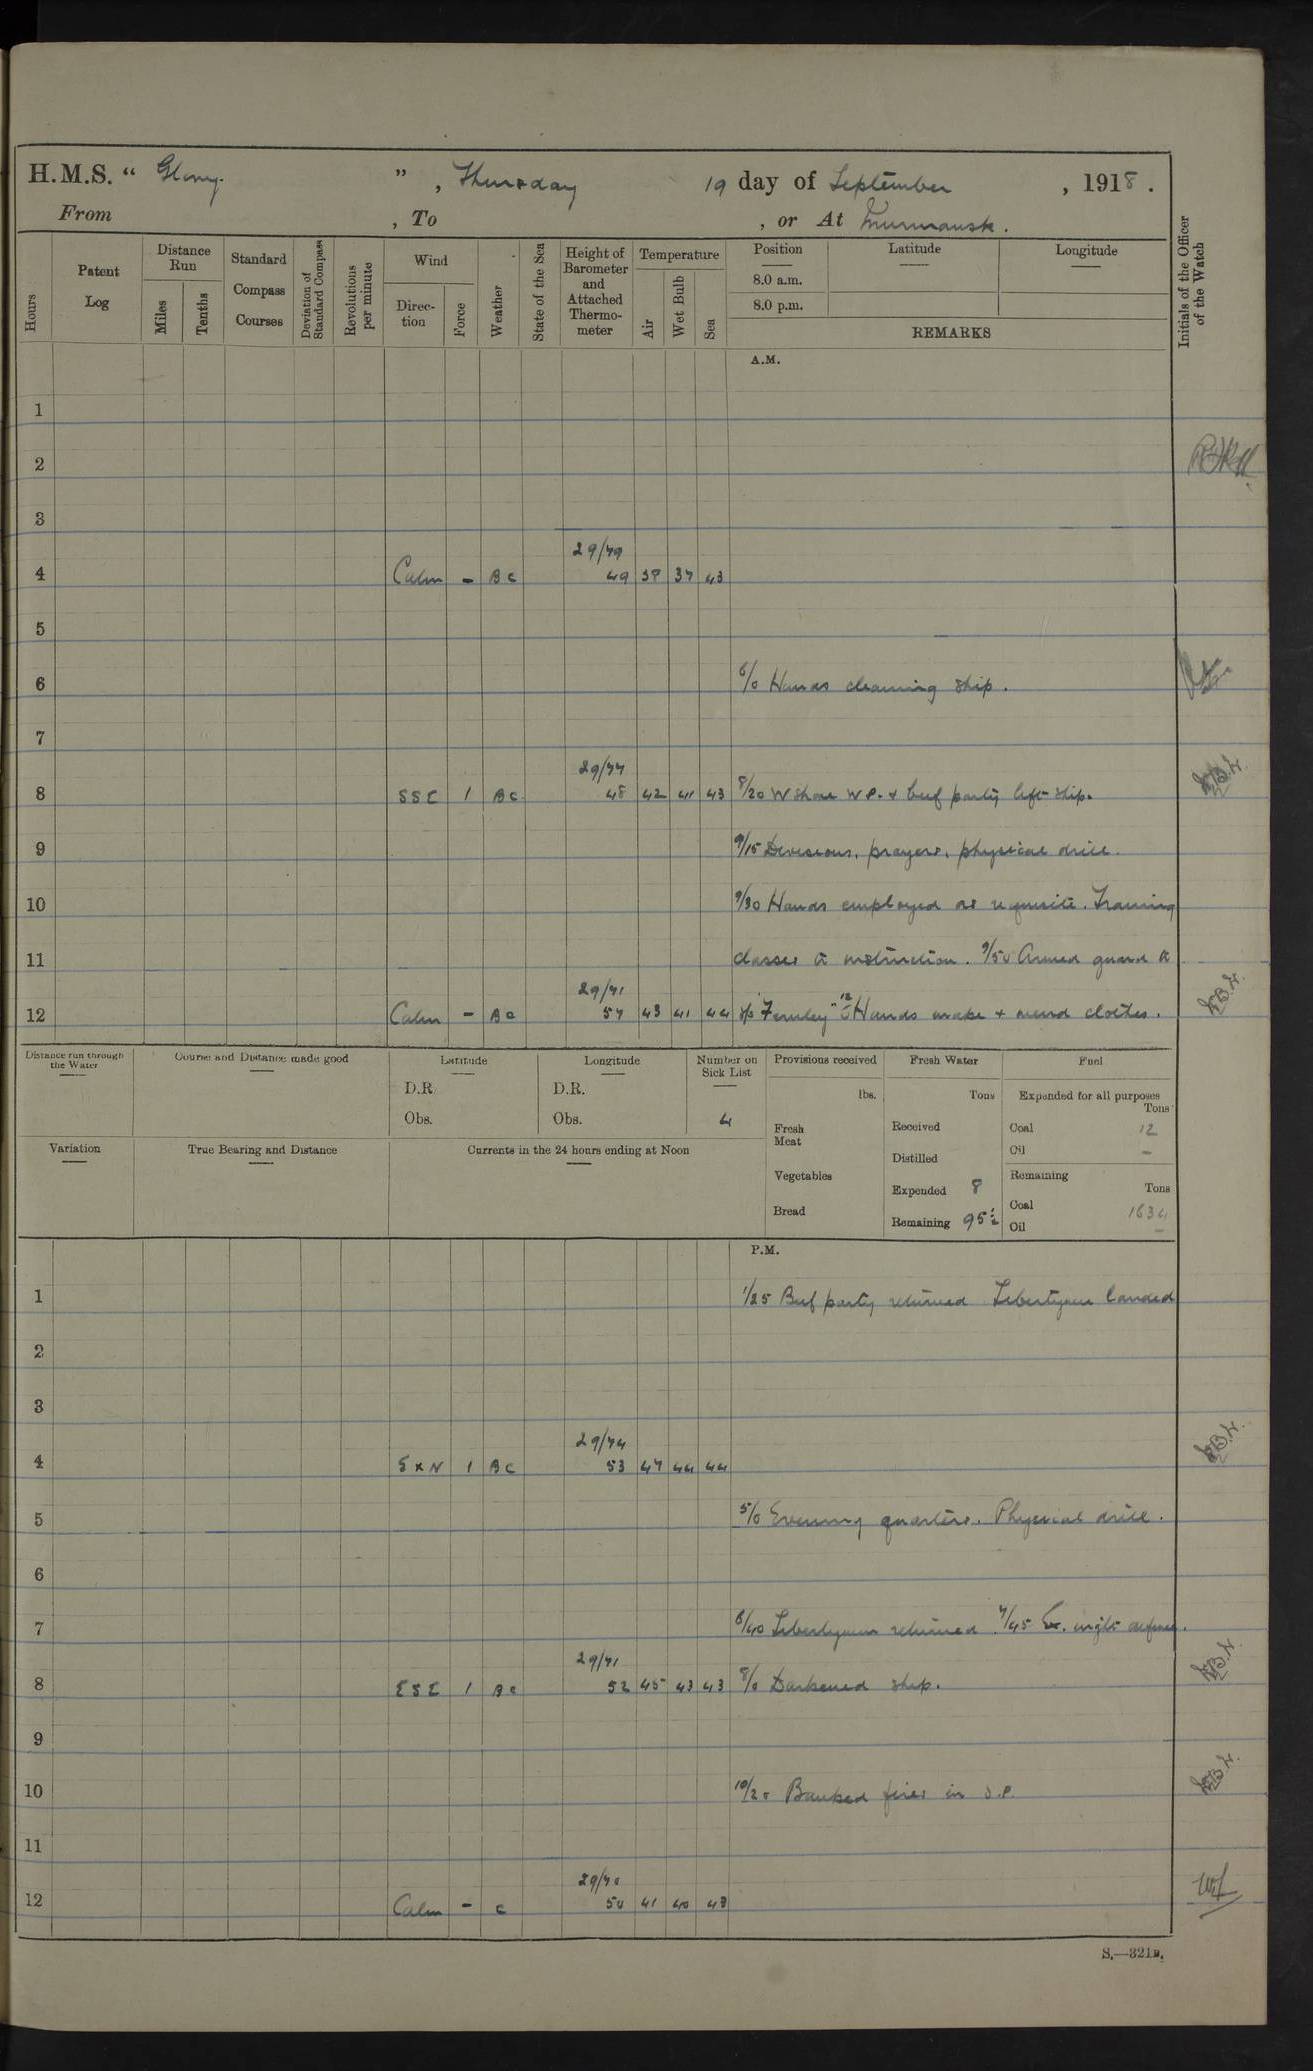 H.M.S. “ Glory. ” , Thursday 19 day of September , 1918 .
From , To , or At Murmansk.
Hours
Patent Log
Distance Run
Miles
Tenths
Standard Compass Courses
Deviation of Standard Compass
Revolutions per minute
Wind
Direc-tion
Force
Weather
State of the Sea
Height of Barometer and Attached Thermo-meter
Temperature
Air
Wet Bulb
Sea
Position
8.0 a.m.
8.0 p.m.
Latitude
Longitude
REMARKS
Initials of the Officer of the Watch
A.M.
1
2
3
29/79
4 Calm - BC 49 38 37 43
5
6 6/0 Hands cleaning ship.
7
29/77
8 SSE 1 BC 48 42 41 43 8/20 W share W.P. & beef party left ship.
9 9/15 Divisions, prayers, physical drill.
10 9/30 Hands employed as requisite. Training
11 classes at instruction. 9/50 Armed guard to
29/71
12 Calm - BC 57 43 41 44 s/s "Fernley" 12/0 Hands make & mend clothes.
Distance run through the Water
Course and Distance made good
Latitude
D.R.
Obs.
Longitude
D.R.
Obs.
Number on Sick List
4
Provisions received
lbs.
Fresh Meat
Vegetables
Bread
Fresh Water
Tons
Received
Distilled
Expended 8
Remaining 95½
Fuel
Expended for all purposes
Tons
Coal 12
Oil -
Remaining
Tons
Coal 1634
Oil -
Variation
True Bearing and Distance
Currents in the 24 hours ending at Noon
P.M.
1 1/25 Beef party returned Libertymen landed
2
3
29/74
4 E x N 1 BC 53 47 44 44
5 5/0 Evening quarters. Physical drill.
6
7 6/40 Libertymen returned. 7/45 Ex. night defence.
29/71
8 ESE 1 BC 52 45 43 43 8/0 Darkened ship.
9
10 10/20 Banked fires in S.P.
11
29/70
12 Calm - C 50 41 40 43
S.—321B.